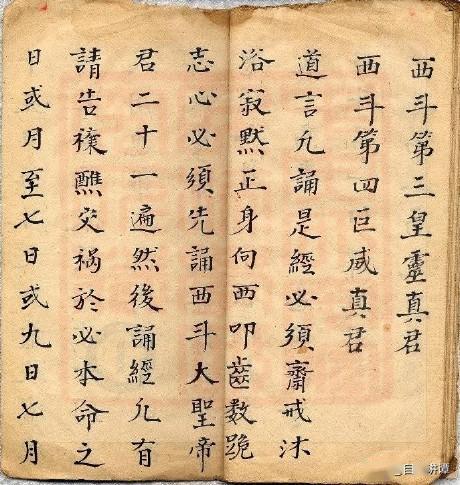 西斗第三皇靈真君
西斗第四巨威真君
道言凢誦是經必須齋戒沐
浴寂默正身向西叩齒數跪
志心必須先誦西斗大聖帝
君二十一遍然後誦經凢有
請告禳醮灾禍於必本命之
日或月至七日或九日七月